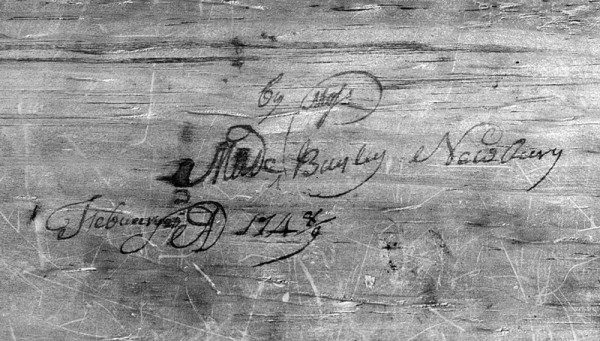 By
Made Bayley Newbury
Febuary AD 174 8/9